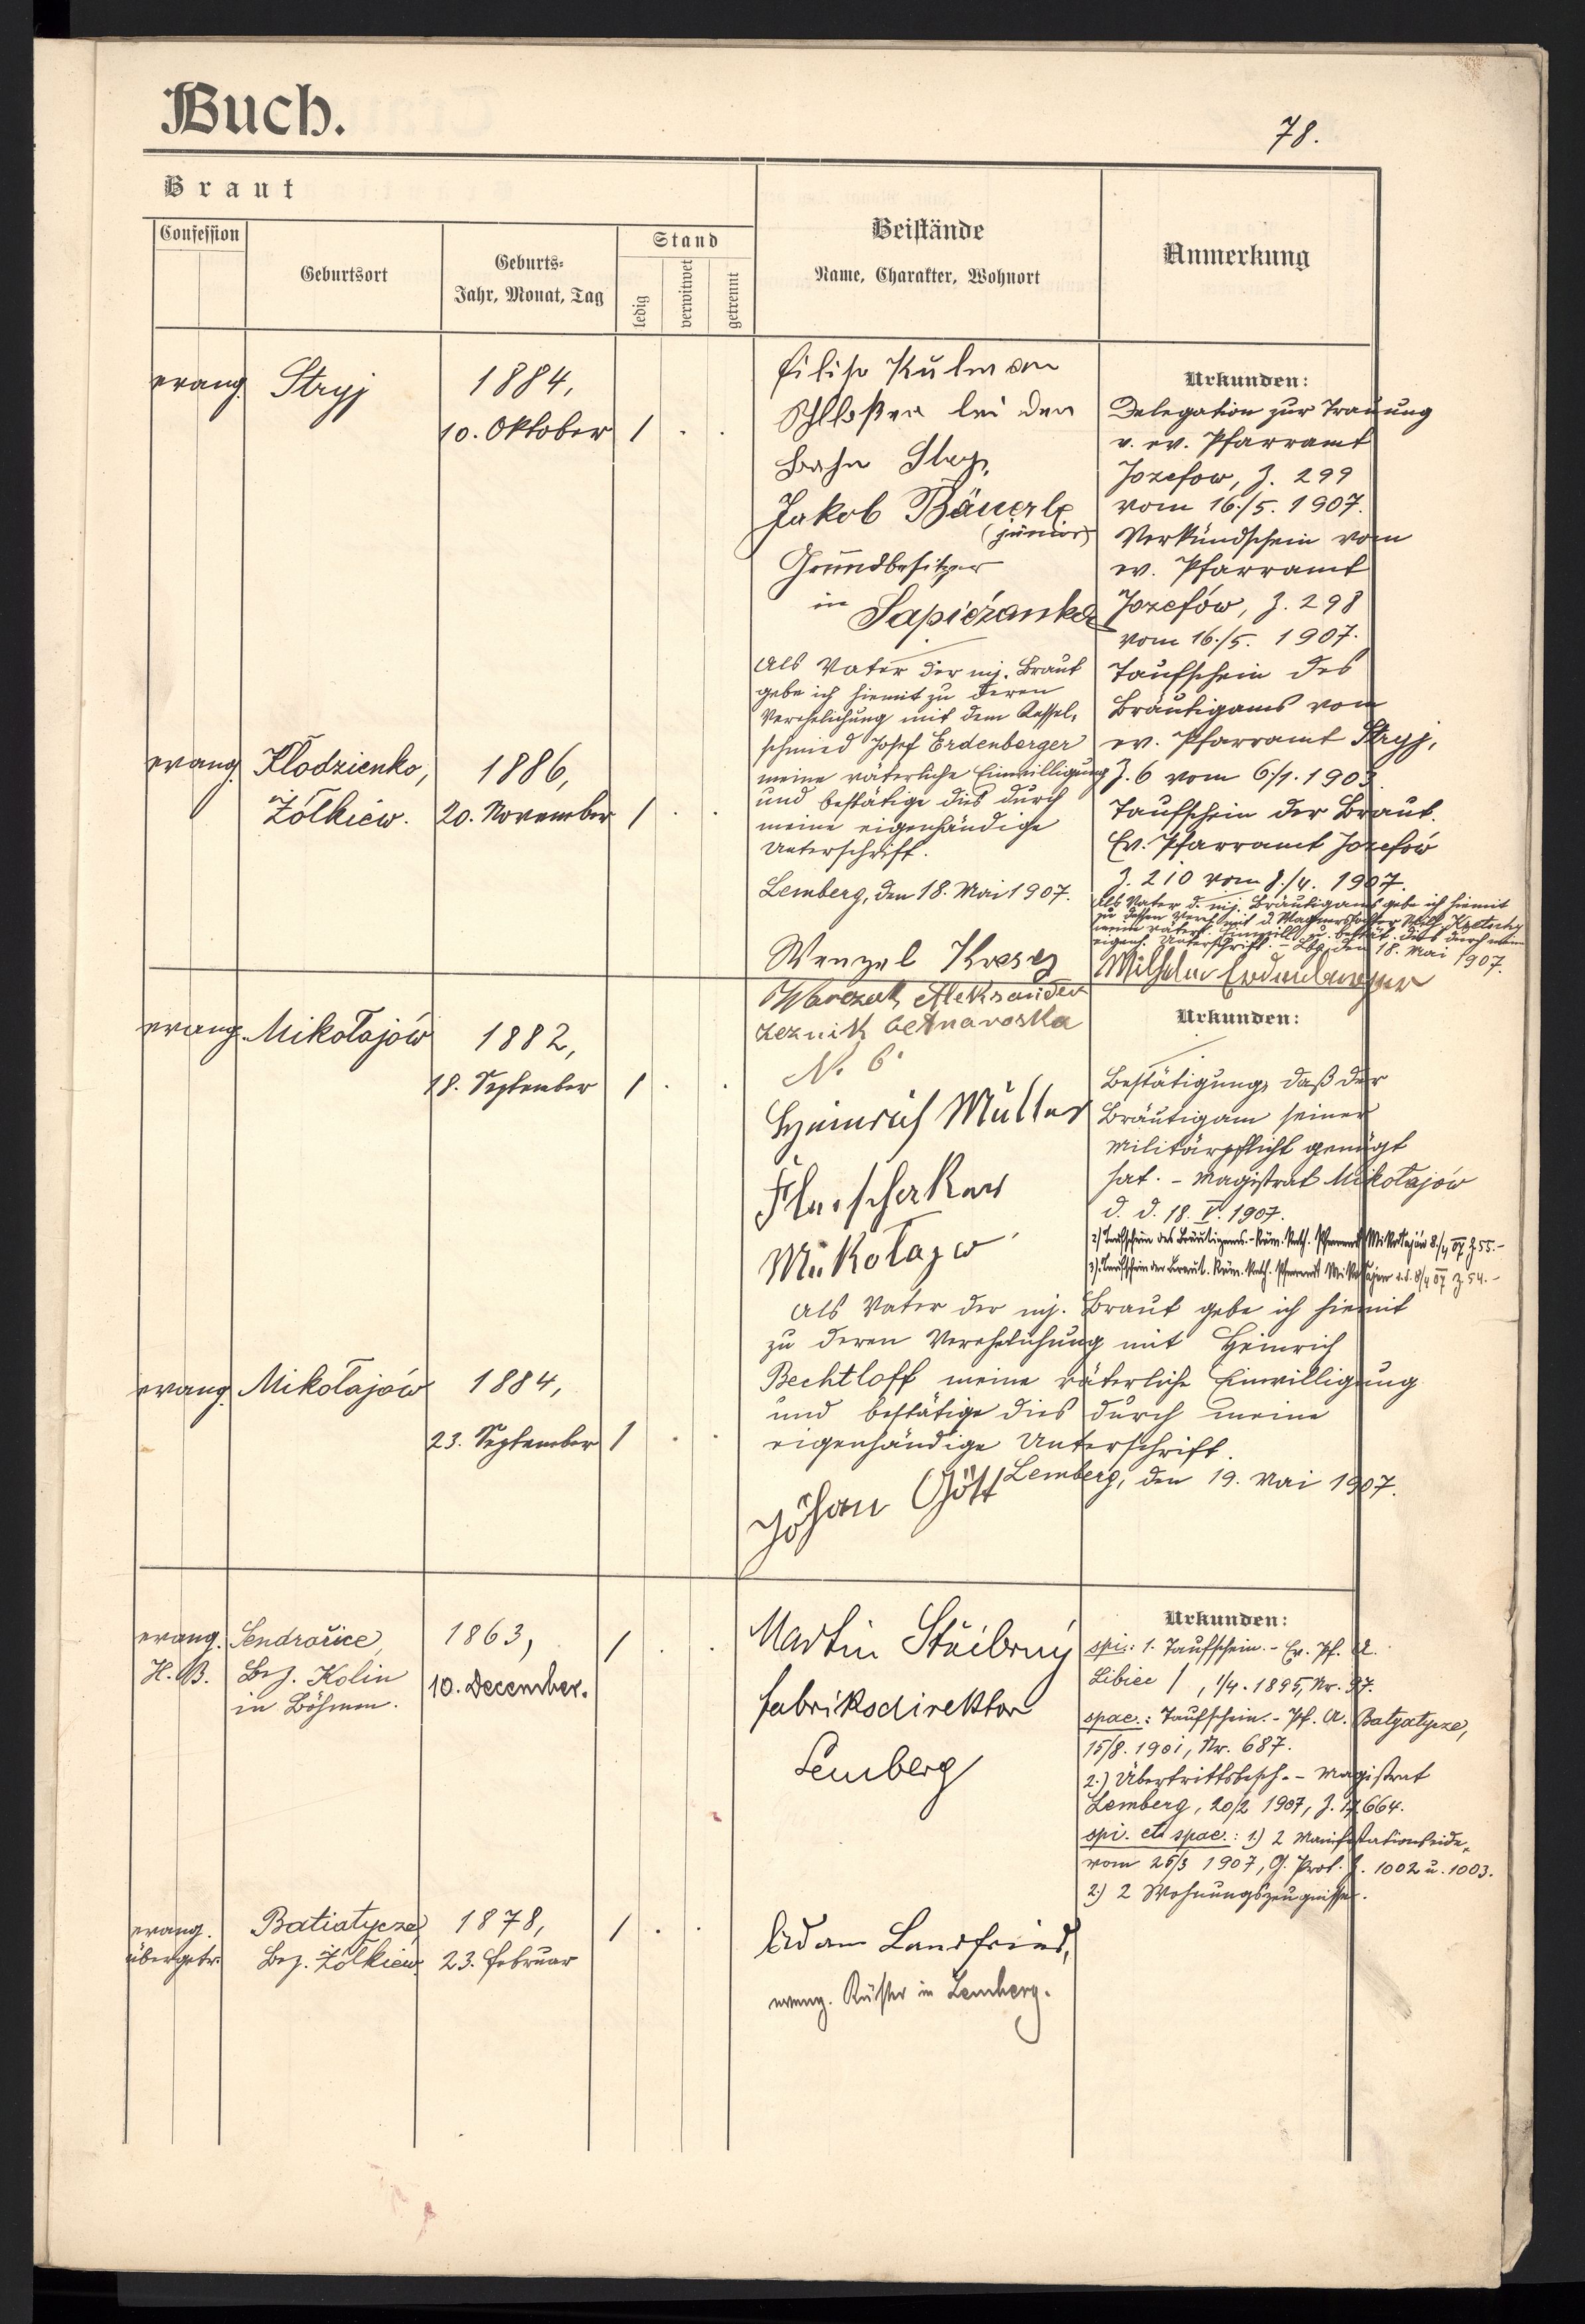 Buch.
78.
Braut
Confession
Geburtsort
Geburts-
Jahr, Monat, Tag
Stand
ledig
verwitwet
getrennt
Beistände
Name, Charakter, Wohnort
Anmerkung
evang. Stryj 1884,
10. Oktober 1 . .
Filip Kulmann
Schloßer bei der
Bahn Stryj.
Jakob Bäuerle
(junior)
Grundbesitzer
in Sapieżanka
Als Vater der mj. Braut
gebe ich hiemit zu deren
Verehelichung mit dem Kessel-
schmied Josef Erdenberger
meine väterliche Einwilligung
und bestätige dies durch
meine eigenhändige
Unterschrift.
Lemberg, den 18. Mai 1907.
Wenzel
Urkunden:
Delegation zur Trauung
v. ev. Pfarramt
Jozefow, Z. 299
vom 16./5. 1907.
Verkündschein vom
ev. Pfarramt
Jozefów, Z. 298
vom 16./5. 1907.
Taufschein des
Bräutigams vom
ev. Pfarramt Stryj,
Z. 6 vom 6./1. 1903.
Taufschein der Braut.
Ev. Pfarramt Jozefów
Z. 210 vom 8./4. 1907.
Als Vater d. mj. Bräutigams gebe ich hiemit
zu dessen Verehl. mit d. Wagnerstochter
meine väterl. Einwill. u. bestät. dies durch meine
eigenh. Unterschrift. - Lbg, den 18. Mai 1907.
Wilhelm Erdenberger
evang. Kłodzienko, 1886,
Żółkiew. 20. November 1 . .
evang. Mikołajów 1882,
18. September 1 . .
Aleksander
No. 6
Heinrich Müller
Fleischaker
Mikołajow
Urkunden:
Bestätigung, daß der
Bräutigam seiner
Militärpflicht genügt
hat. - Magistrat Mikołajów
d. d. 18. V. 1907.
2) Taufschein des Bräutigams. - Röm. kath. Pfarramt Mikołajów 8./4 07 Z. 55. -
3) Taufschein der Braut. Röm. kath. Pfarramt Mikołajów d. d. 8/4 07 Z. 54. -
Als Vater der mj. Braut gebe ich hiemit
zu deren Verehelichung mit Heinrich
Bechtloff meine väterliche Einwilligung
und bestätige dies durch meine
eigenhändige Unterschrift.
Lemberg, den 19. Mai 1907.
Johan Gött
evang. Mikołajów 1884,
23. September 1 . .
evang. Sendražice, 1863, 1 . .
H. B. Bez. Kolin 10. December.
in Böhmen.
Martin Střibrný
Fabriksdirektor
Lemberg
Urkunden:
spi.: 1. Taufschein. - Ev. Pf. A.
Libice /, 1/4. 1895, Nr. 37.
spae.: Taufschein. - Pf. A. Batyatycze,
15/8. 1901, Nr. 687.
2.) Übertrittsbesch. - Magistrat
Lemberg, 20/2 1907, Z. 17664.
spi. et spae.: 1.) 2 Manifestationseide,
vom 25/3 1907, G. Prot. Z. 1002 u. 1003.
2.) 2 Wohnungszeugnisse.
evang. Batiatycze, 1878, 1 . .
übergetr. Bez. Żółkiew. 23. Februar
Adam Landfried,
evang. Küster in Lemberg.